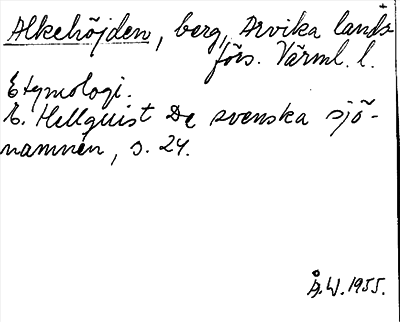 Alkehöjden, berg, Arvika lands
förs. Värml. l.
Etymologi.
E. Hellquist De svenska sjö-
namnen, s. 24.
Å.W. 1955.